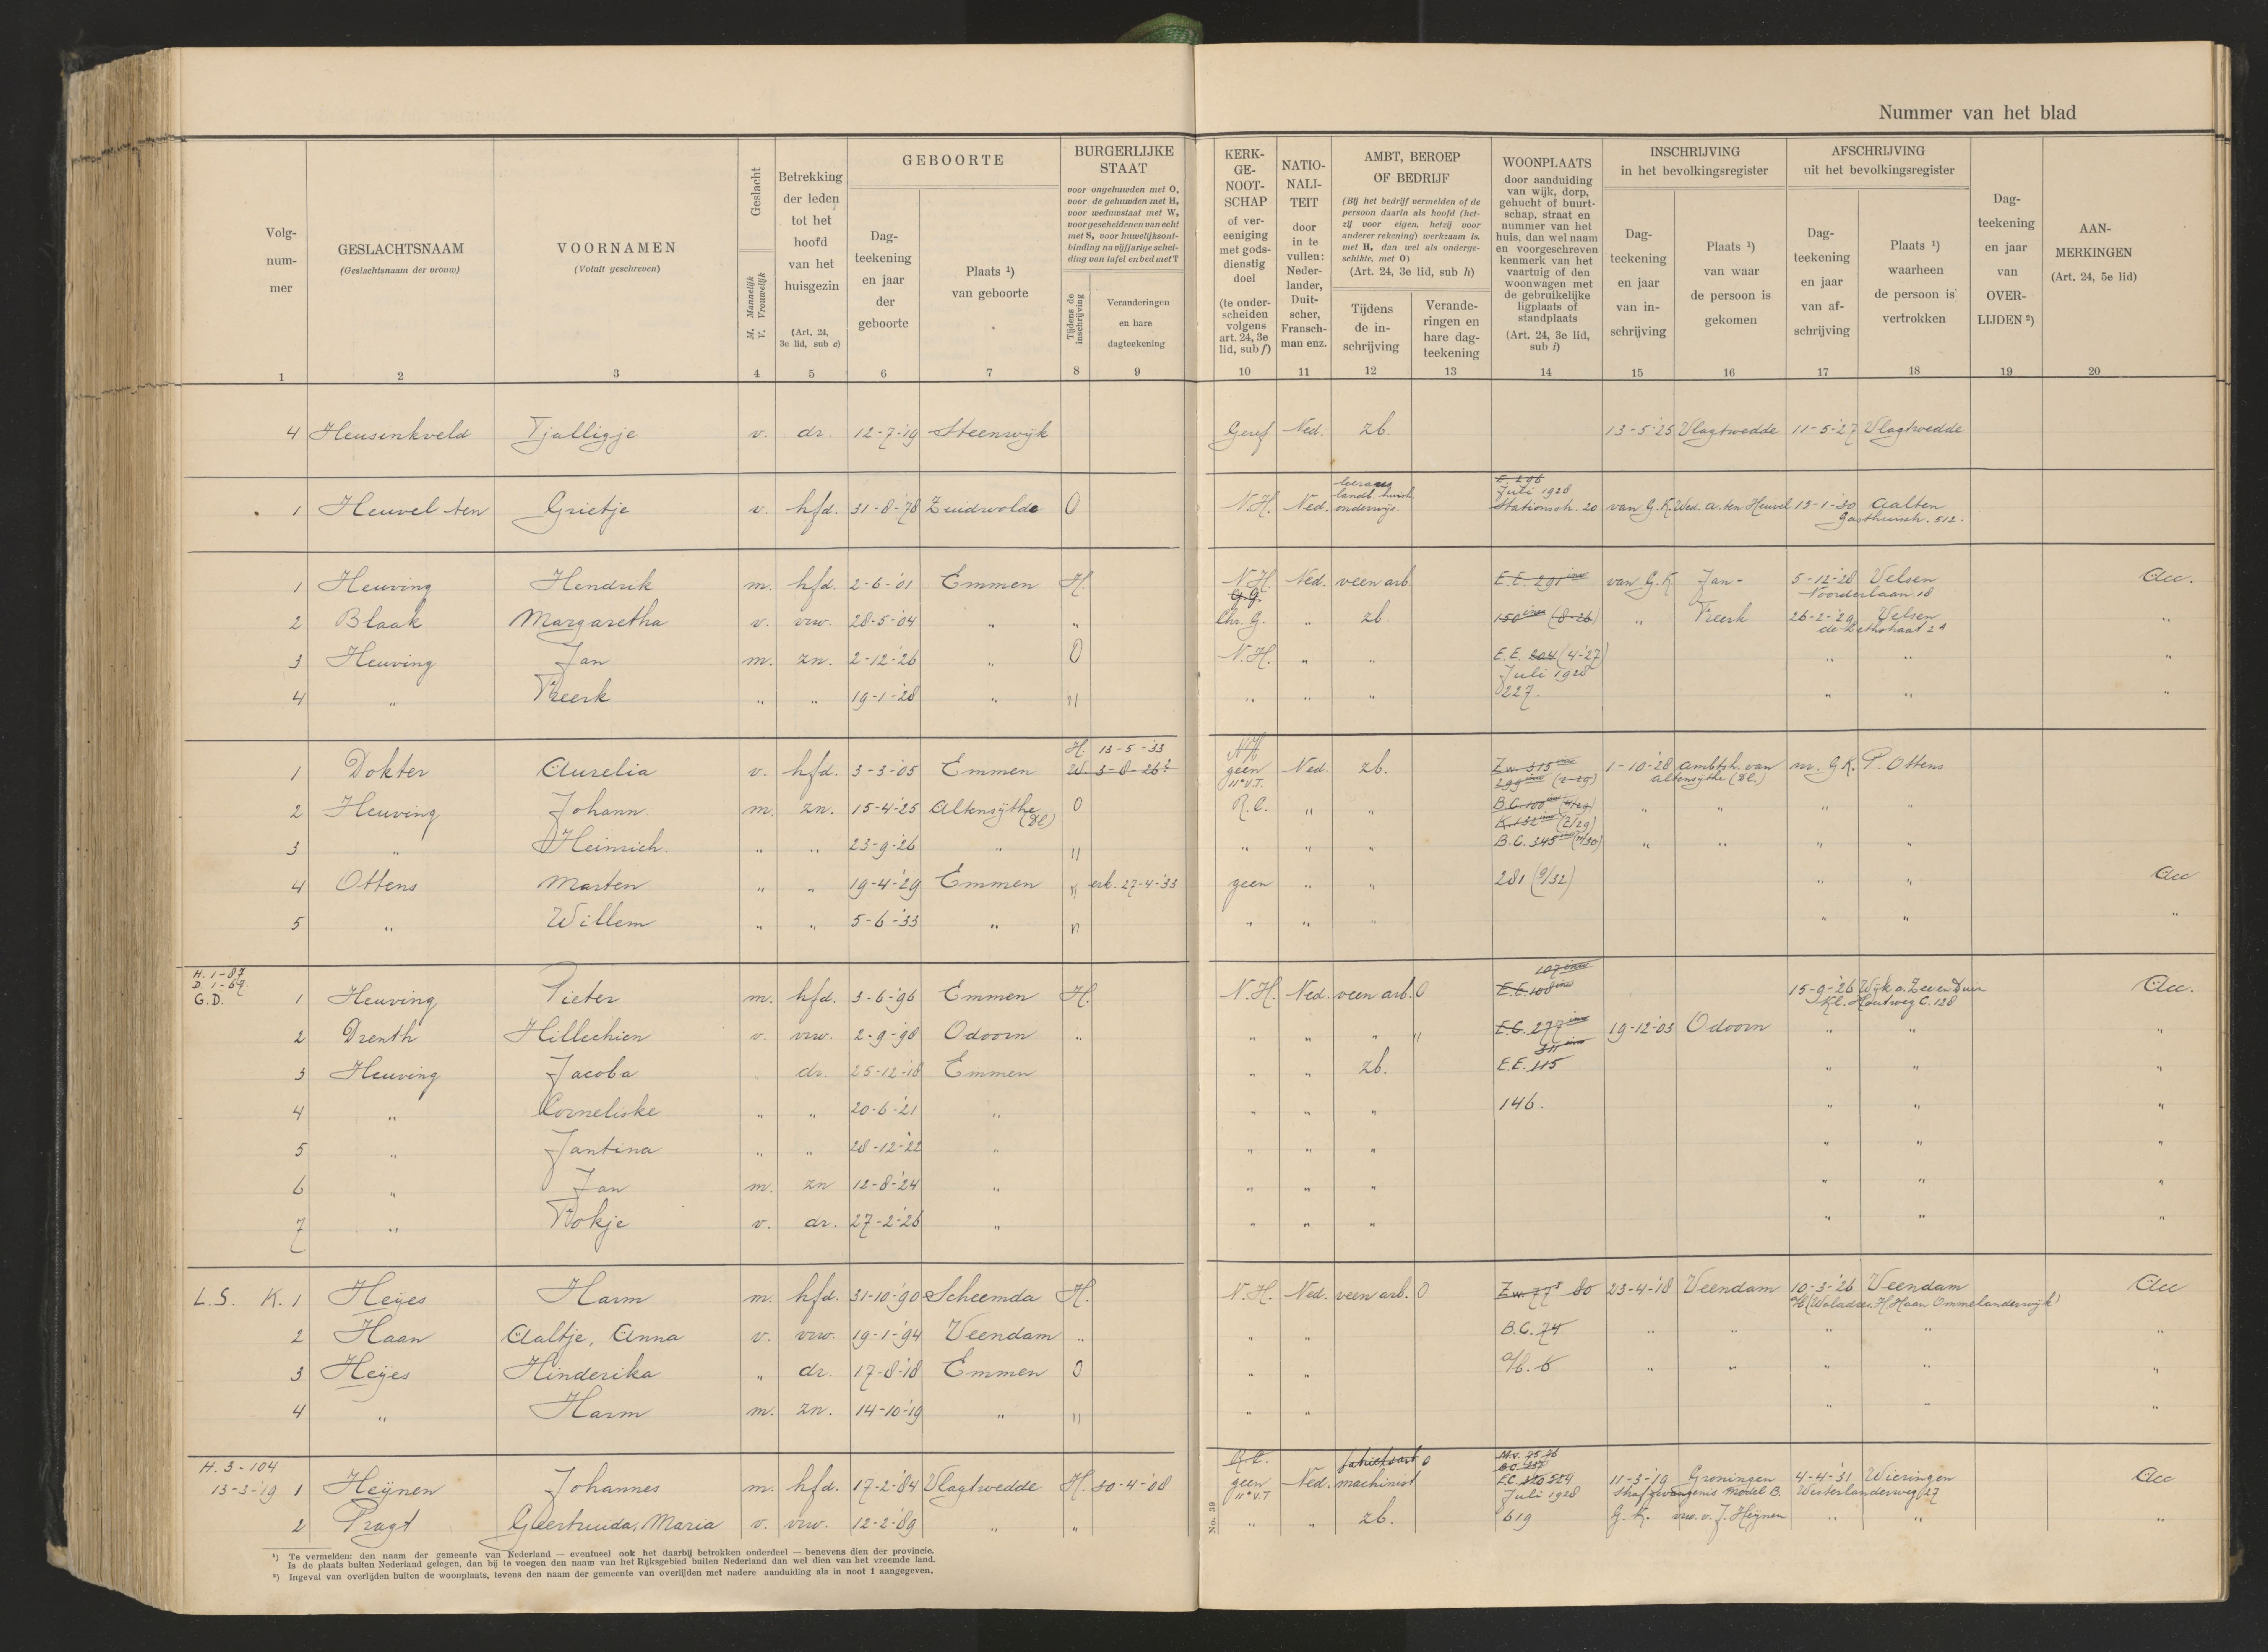 Nummer van het blad
Volg-
num-
mer
GESLACHTSNAAM
(Geslachtsnaam der vrouw)
VOORNAMEN
(Voluit geschreven)
Geslacht
M. Mannelijk
V. Vrouwelijk
Betrekking
der leden
tot het
hoofd
van het
huisgezin
(Art. 24,
3e lid, sub c)
GEBOORTE
Dag-
teekening
en jaar
der
geboorte
Plaats ¹)
van geboorte
BURGERLIJKE
STAAT
voor ongehuwden met O,
voor de gehuwden met H,
voor weduwstaat met W,
voor gescheidenen van echt
met S, voor huwelijksont-
binding na vijfjarige schei-
ding van tafel en bed met T
Tijdens de
inschrijving
Veranderingen
en hare
dagteekening
KERK-
GE-
NOOT-
SCHAP
of ver-
eeniging
met gods-
dienstig
doel
(te onder-
scheiden
volgens
art. 24, 3e
lid, sub f)
NATIO-
NALI-
TEIT
door
in te
vullen:
Neder-
lander,
Duit-
scher,
Fransch-
man enz.
AMBT, BEROEP
OF BEDRIJF
(Bij het bedrijf vermelden of de
persoon daarin als hoofd (het-
zij voor eigen, hetzij voor
anderer rekening) werkzaam is,
met H, dan wel als onderge-
schikte, met O)
(Art. 24, 3e lid, sub h)
Tijdens
de in-
schrijving
Verande-
ringen en
hare dag-
teekening
WOONPLAATS
door aanduiding
van wijk, dorp,
gehucht of buurt-
schap, straat en
nummer van het
huis, dan wel naam
en voorgeschreven
kenmerk van het
vaartuig of den
woonwagen met
de gebruikelijke
ligplaats of
standplaats
(Art. 24, 3e lid,
sub i)
INSCHRIJVING
in het bevolkingsregister
Dag-
teekening
en jaar
van in-
schrijving
Plaats ¹)
van waar
de persoon is
gekomen
AFSCHRIJVING
uit het bevolkingsregister
Dag-
teekening
en jaar
van af-
schrijving
Plaats ¹)
waarheen
de persoon is
vertrokken
Dag-
teekening
en jaar
van
OVER-
LIJDEN ²)
AAN-
MERKINGEN
(Art. 24, 5e lid)
1 2 3 4 5 6 7 8 9 10 11 12 13 14 15 16 17 18 19 20
4 Heusinkveld Tjalligje v. dr. 12-7-'19 Steenwijk Geref Ned. zb. 13-5-'25 Vlagtwedde 11-5-'27 Vlagtwedde
leerares E. 296
landb. huish. Juli 1928
1 Heuvel ten Grietje v. hfd. 31-8-'78 Zuidwolde O N.H. Ned. onderwijs Stationsstr. 20 van G.K. Wed. A. ten Heuvel 13-1-'30 Aalten
Gasthuisstr. 512.
1 Heuving Hendrik m. hfd. 2-6-'01 Emmen H. N.H. Ned. veen arb. E.E. 291 inw van G.K. Jan- 5-12-'28 Velsen Acc.
G.G. Noorderlaan 18
2 Blaak Margaretha v. vrw. 28-5-'04 " " Chr. G. " zb. 150 inw (8-26) " Freerk 26-2-'29 Velsen "
3 Heuving Jan m. zn. 2-12-'26 " O N.H. " " E.E. 204 (4-'27) " " "
Juli 1928
4 " Freerk " " 19-1-'28 " " " " " 227. " " "
H. 13-5-'33 NH
1 Dokter Aurelia v. hfd. 3-3-'05 Emmen W 3-8-26? geen Ned. zb. Zw. 315 inw 1-10-'28 Ambtsh. van nr. G.K. P. Ottens
11e V.T. 299 inw (2-29) Altensythe (Dl.)
2 Heuving Johann m. zn. 15-4-'25 Altensythe (Dl) O R.C. " " B.C. 100 inw " " " "
K. 132 inw (7/29)
3 " Heinrich. " " 23-9-'26 " " " " " B.C. 345 inw " " " "
4 Ottens Marten " " 19-4-'29 Emmen " erk. 27-4-'33 geen " " 281 (9/32) " " Acc
5 " Willem " " 5-6-'33 " " " " " " " "
H. 1-87
D. 1-69. 107 inw
G.D. 1 Heuving Pieter m. hfd. 3-6-'96 Emmen H. N.H. Ned. veen arb. O E.E. 108 inw 15-9-'26 Wijk a. Zee en Duin Acc.
Kl. Houtweg C. 128
2 Drenth Hillechien v. vrw. 2-9-'98 Odoorn " " " " " E.C. 277 inw 19-12-'03 Odoorn " " "
311 inw
3 Heuving Jacoba dr. 25-12-'18 Emmen " " zb. E.E. 115 " " "
4 " Corneliske " " 20-6-'21 " " " " 146. " " "
5 " Jantina " " 28-12-'22 " " " " " " "
6 " Jan m. zn 12-8-'24 " " " " " " "
7 " Fokje v. dr. 27-2-'26 " " " " " " "
L.S. K. 1 Heyes Harm m. hfd. 31-10-'90 Scheemda H. N.H. Ned. veen arb. O Zw. 77 80 23-4-'18 Veendam 10-3-'26 Veendam Acc
H. Haan Ommelanderwijk)
2 Haan Aaltje, Anna v. vrw. 19-1-'94 Veendam " " " B.C. 74 " " " " "
3 Heyes Hinderika " dr. 17-8-'18 Emmen O " " a/b. 6 " " " " "
4 " Harm m. zn. 14-10-'19 " " " " " " "
H. 3-104 R.C. O
13-3-'19 1 Heijnen Johannes m. hfd. 17-2-'84 Vlagtwedde H. 30-4-'08 geen Ned. machinist 11-3-'19 Groningen 4-4-'31 Wieringen Acc
11e V.T Juli 1928 Strafgevangenis Model B. Westerlanderweg 27
2 Pragt Geertruida, Maria v. vrw. 12-2-'89 " " " " zb. 619 G.K. vrw. v. J. Heijnen " " "
No. 39
¹) Te vermelden: den naam der gemeente van Nederland — eventueel ook het daarbij betrokken onderdeel — benevens dien der provincie.
Is de plaats buiten Nederland gelegen, dan bij te voegen den naam van het Rijksgebied buiten Nederland dan wel dien van het vreemde land.
²) Ingeval van overlijden buiten de woonplaats, tevens den naam der gemeente van overlijden met nadere aanduiding als in noot 1 aangegeven.